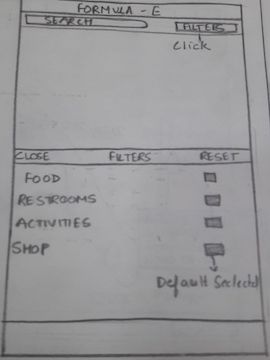 FORMULA - E
SEARCH FILTERS
Click
CLOSE FILTERS RESET
FOOD
RESTROOMS
ACTIVITIES
SHOP
Default Selected